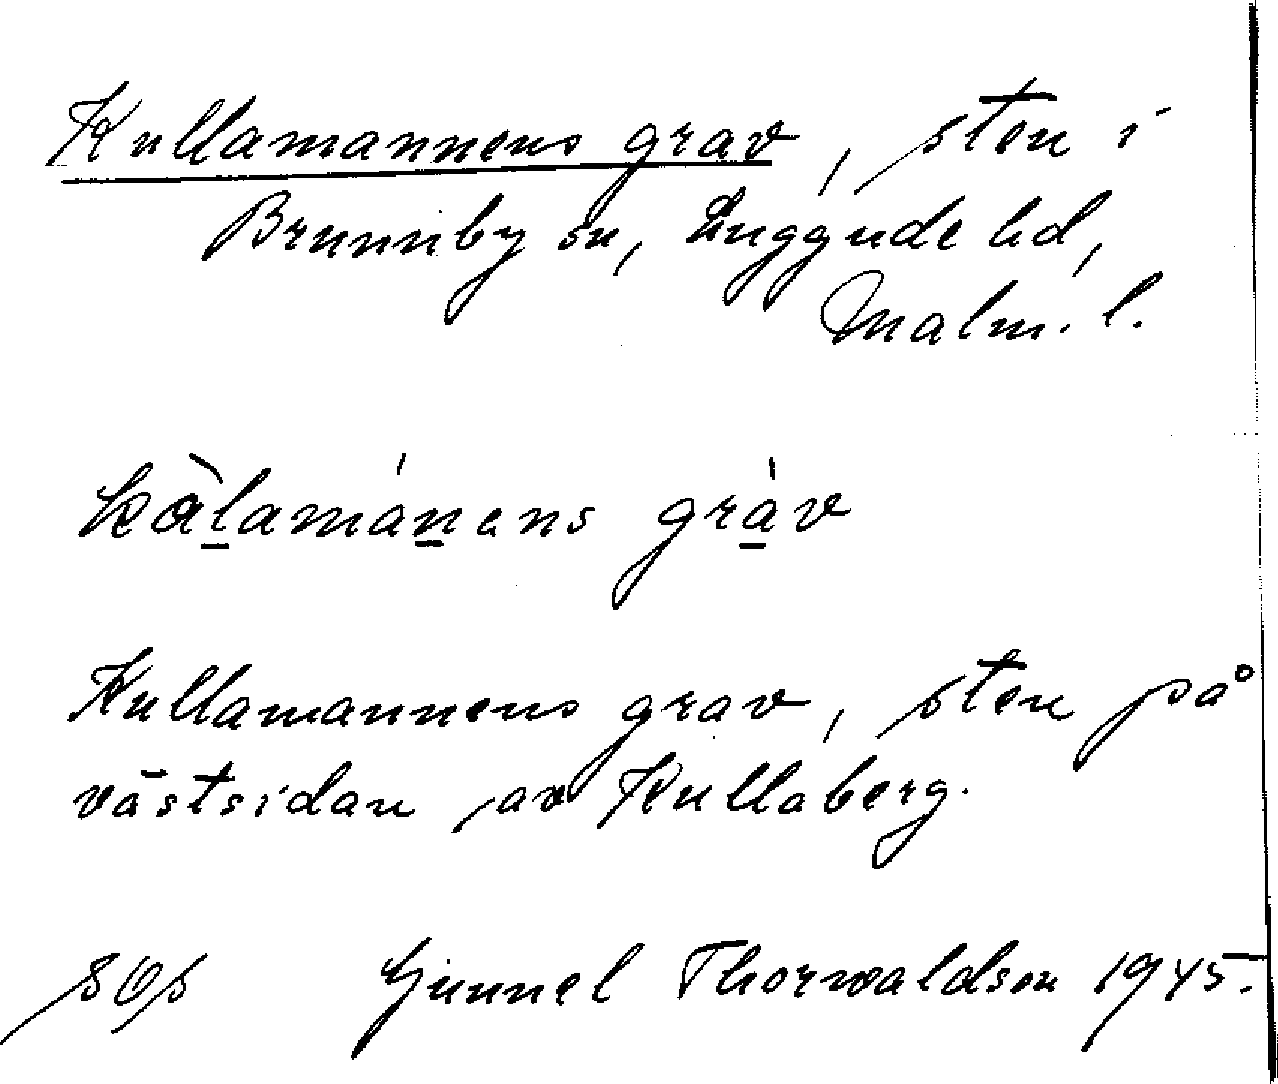 Kullamannens grav, sten i
Brunnby sn, Luggude hd,
Malm. l.
kàlamánens gráv
Kullamannens grav, sten på
västsidan av Kullaberg.
Gunnel Thorwaldson 1945.